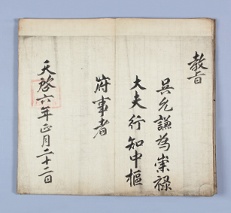 敎旨
吳允謙爲崇祿
大夫行知中樞
府事者
天啓六年正月二十二日